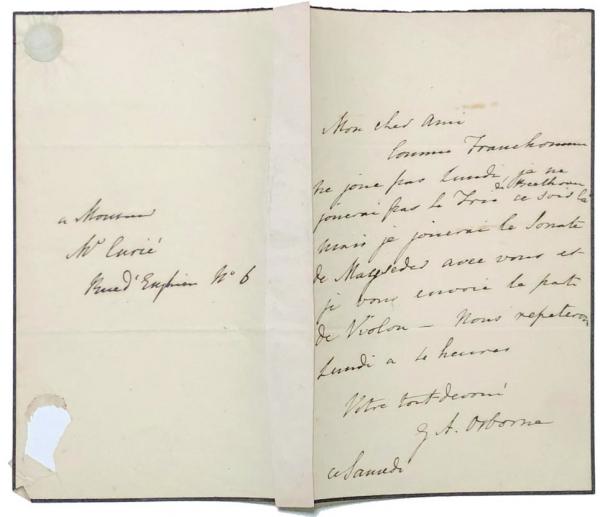 a Monsieur
Mr Curié
Rue d'Enghien No 6
Mon cher Ami
Comme Franchomme
ne joue pas Lundi, je ne
jouerai pas le Trio de Beethoven ce soir là
mais je jouerai le Sonate
de Mayseder avec vous et
je vous envoie la part
de Violon — Nous repeterons
Lundi a 4 heures
Votre tout devoué
G A. Osborne
ce Samedi